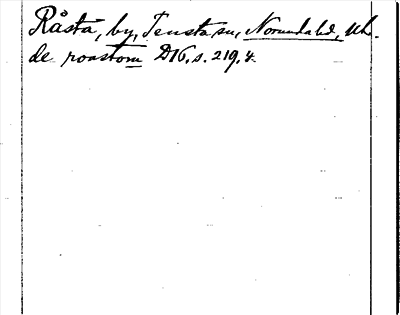 Råsta, by, Tensta sn, Norunda hd, Uh.
de roastom D16. s. 219, 4.